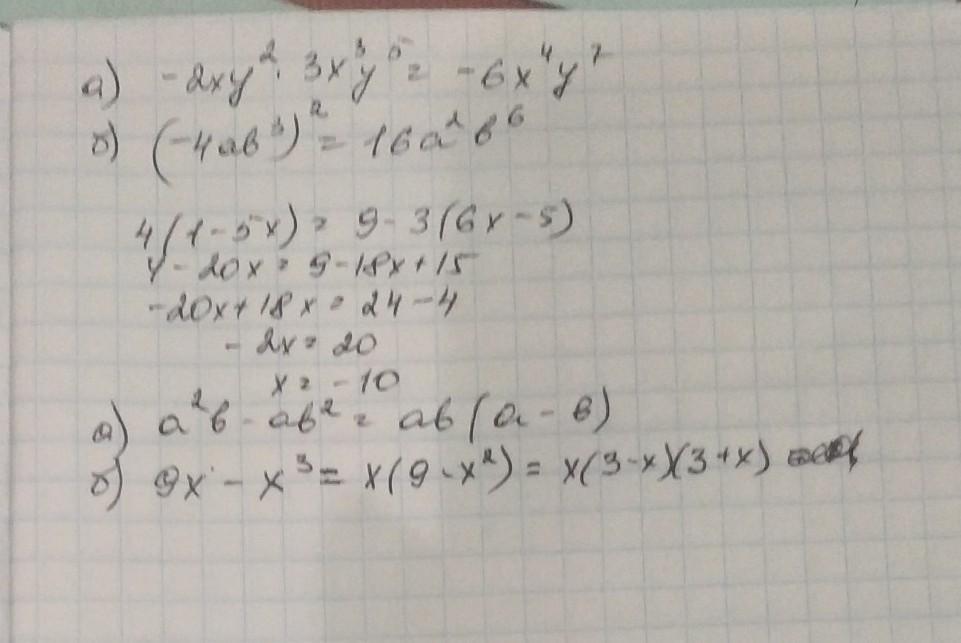 а) -2xy²· 3x³y⁵ = -6x⁴y⁷
б) (-4ab³)² = 16a²b⁶
4(1-5x) = 9-3(6x-5)
4-20x = 9-18x+15
-20x+18x = 24-4
-2x = 20
x = -10
а) a²b - ab² = ab(a-b)
б) 9x - x³ = x(9-x²) = x(3-x)(3+x)